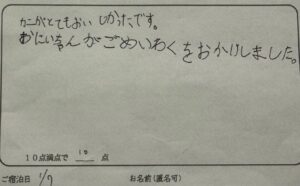 かにがとてもおいしかったです。
おにいちゃんがごめいわくをおかけしました。
10点満点で 10 点
ご宿泊日 1/7 お名前(匿名可)